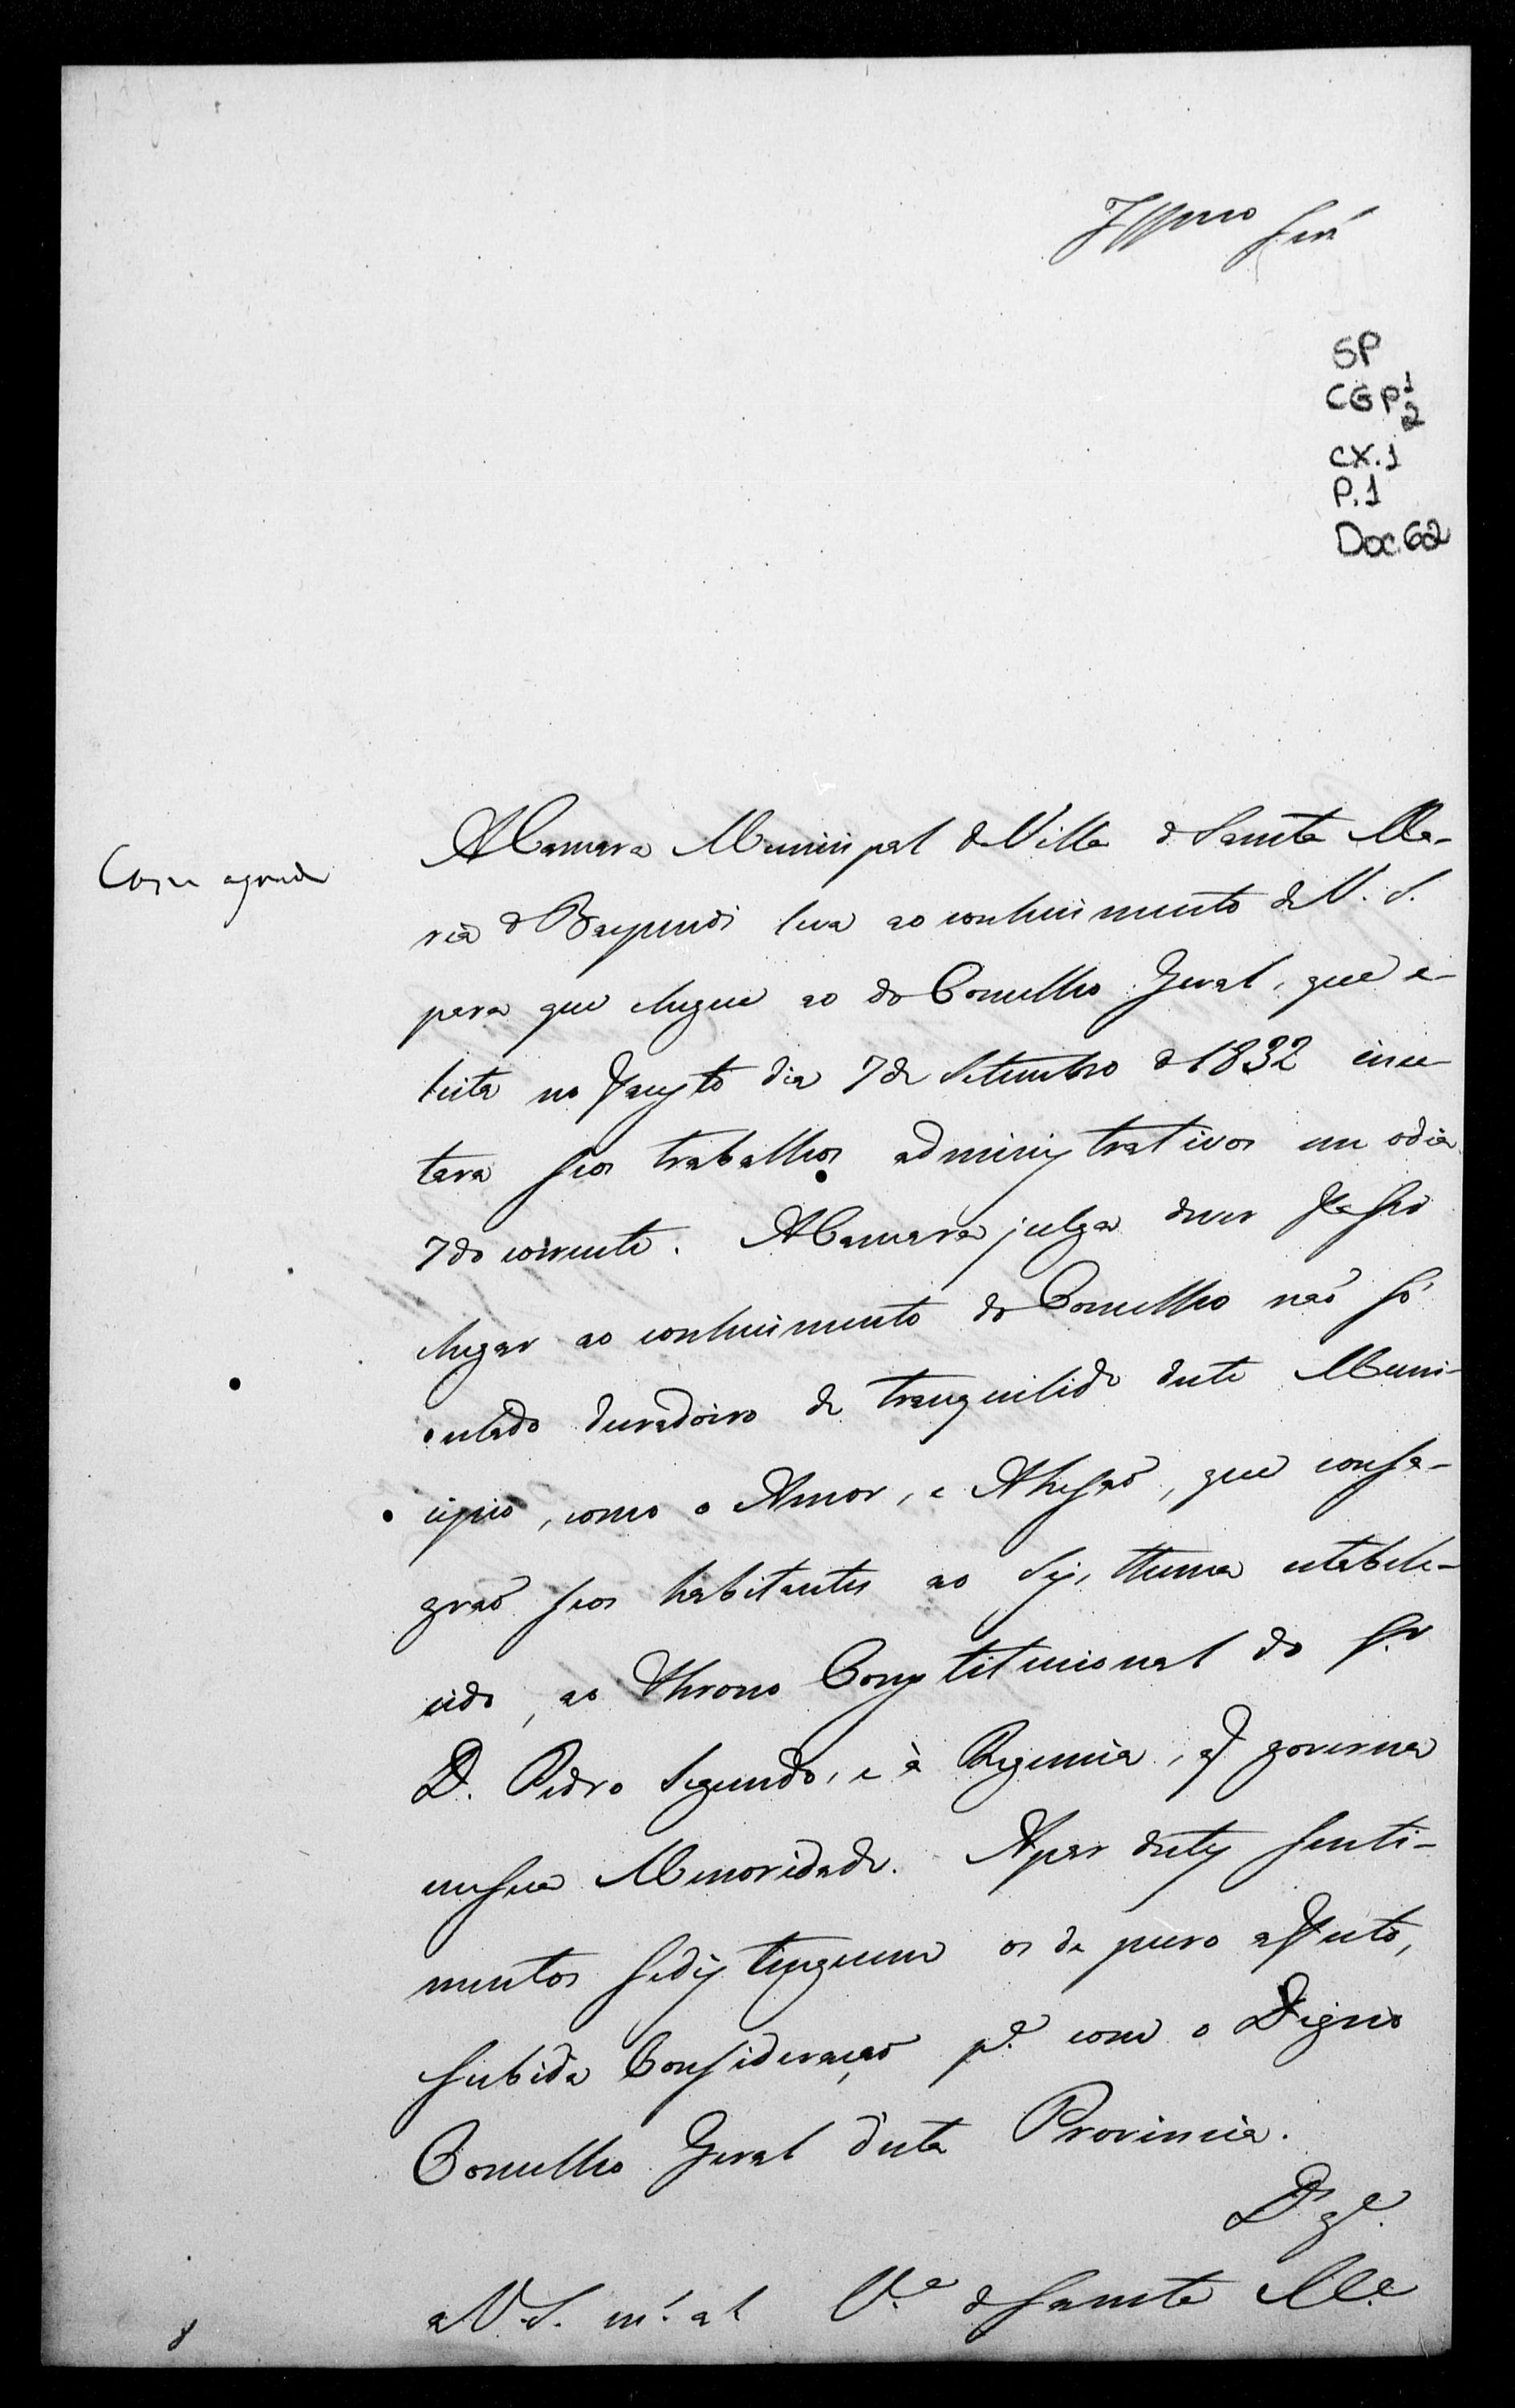 Illmo Senr
SP
CGP 1/2
CX.1
P.1
Doc.62
Com agrado
A Camara Municipal da Villa de Santa Ma-
ria de Baependi leva ao conhecimento de V. S.
para que chegue ao do Concelho Geral, que e-
leita no Fausto dia 7 de Setembro de 1832 ence
tara seos trabalhos administrativos em o dia
7 do corrente. A Camara julga dever fazer
chegar ao conhecimento do Concelho não só
o estado duradoiro de tranquilide deste Muni-
cipio, como o Amor, e Adhesaõ, que consa-
graõ seos habitantes ao Systhema estabele-
cido, ao Throno Constitucional do Sr.
D. Pedro Segundo, e à Regencia, q governa
em sua Menoridade. A par destes senti-
mentos se distinguem os de puro affecto,
subida Consideraçaõ pa. com o Digno
Concelho Geral desta Provincia.
Ds. ge.
a V. S. ms. as Va. de Santa Ma.